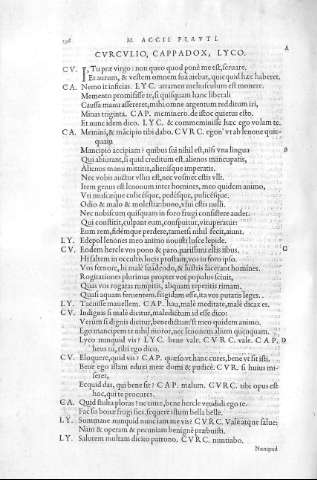 198 M. ACCII PLAVTI
A
CVRCVLIO, CAPPADOX, LYCO.
CV. I, Tu præ virgo: non queo quod ponè me est, seruare.
Et aurum, & vestem omnem suā esse, quicquid hæc haberet.
CA. Nemo it inficias. LYC. attamen meliusculum est monere.
Memento promisisse te, si quisquam hanc liberali
Caussa manu assereret, mihi omne argentum redditum iri,
Minas triginta. CAP. meminero. de istoc quietus esto.
Et nunc idem dico. LYC. & commeminisse hæc ego volam te.
CA. Memini, & mācipio tibi dabo. CVRC. egon' vt ab lenone quicquam
Mancipio accipiam? quibus suī nihil est, nisi vna lingua B
Qui abiurant, si quid creditum est. alienos mancupatis,
Alienos manu mittitis, alienisque imperatis.
Nec vobis auctor vllus est, nec vosmet estis vlli.
Item genus est lenonium inter homines, meo quidem animo,
Vt muscæ, culices, pedesque, pulicesque.
Odio & malo & molestiæ: bono vsui estis nulli.
Nec vobiscum quisquam in foro frugi consistere audet.
Qui constitit, culpant eum, conspuitur, vituperatur:
Eum rem, fidemque perdere, tametsi nihil fecit, aiunt.
LY. Edepol lenones meo animo nouisti lusce lepide.
CV. Eodem hercle vos pono & paro. parissimi estis iibus. C
Hi saltem in occultis locis prostant, vos in foro ipso.
Vos fenore, hi malè suadendo, & lustris lacerant homines.
Rogitationes plurimas propter vos populus sciuit,
Quas vos rogatas rumpitis, aliquam reperitis rimam.
Quasi aquam feruentem, frigidam esse, ita vos putatis leges.
LY. Tacuisse mauellem. CAP. hau, malè meditate, malè dicax es.
CV. Indignis si malè dicitur, maledictum id esse dico:
Verum si dignis dicitur, benedictum'st meo quidem animo.
Ego mancipem te nihil moror, nec lenonem alium quenquam.
Lyco nunquid vis? LYC. bene vale. CVRC. vale. CAP. D
heus tu, tibi ego dico.
CV. Eloquere, quid vis? CAP. quæso vt hanc cures, bene vt sit isti.
Bene ego istam eduxi meæ domi & pudicè. CVR. si huius miseret,
Ecquid das, qui bene sit? CAP. malum. CVRC. tibi opus est
hoc, qui te procures.
CA. Quid stulta ploras? ne time, bene hercle vendidi ego te.
Fac sis bonæ frugi sies, sequere istum bella belle.
LY. Summane nunquid nunc iam me vis? CVRC. Vale atque salue:
Nam & operam & pecuniam benignè præbuisti.
LY. Salutem multam dicito patrono. CVRC. nuntiabo.
Nunquid